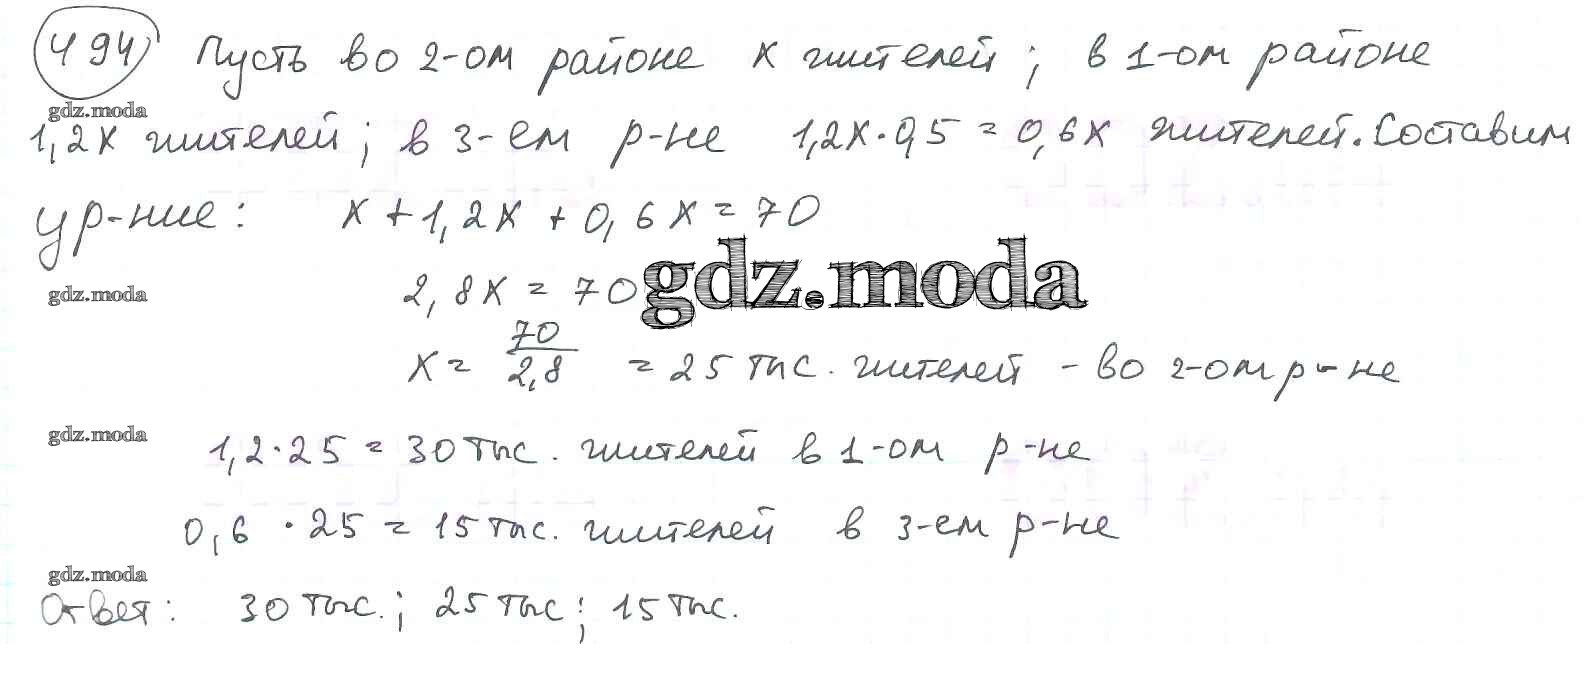 494 Пусть во 2-ом районе x жителей; в 1-ом районе
gdz.moda
1,2x жителей; в 3-ем р-не 1,2x·0,5=0,6x жителей. Составим
ур-ние: x+1,2x+0,6x=70
gdz.moda
2,8x=70
gdz.moda
x= 70/2,8 =25 тыс. жителей - во 2-ом р-не
gdz.moda
1,2·25=30 тыс. жителей в 1-ом р-не
0,6·25=15 тыс. жителей в 3-ем р-не
gdz.moda
Ответ: 30 тыс.; 25 тыс; 15 тыс.